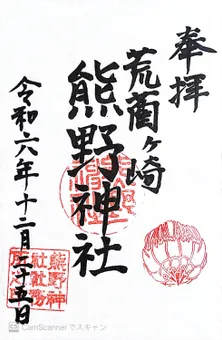 奉拝
荒藺ヶ崎
熊野神社
令和六年十二月二十五日
熊野神
社社務
CamScanner でスキャン